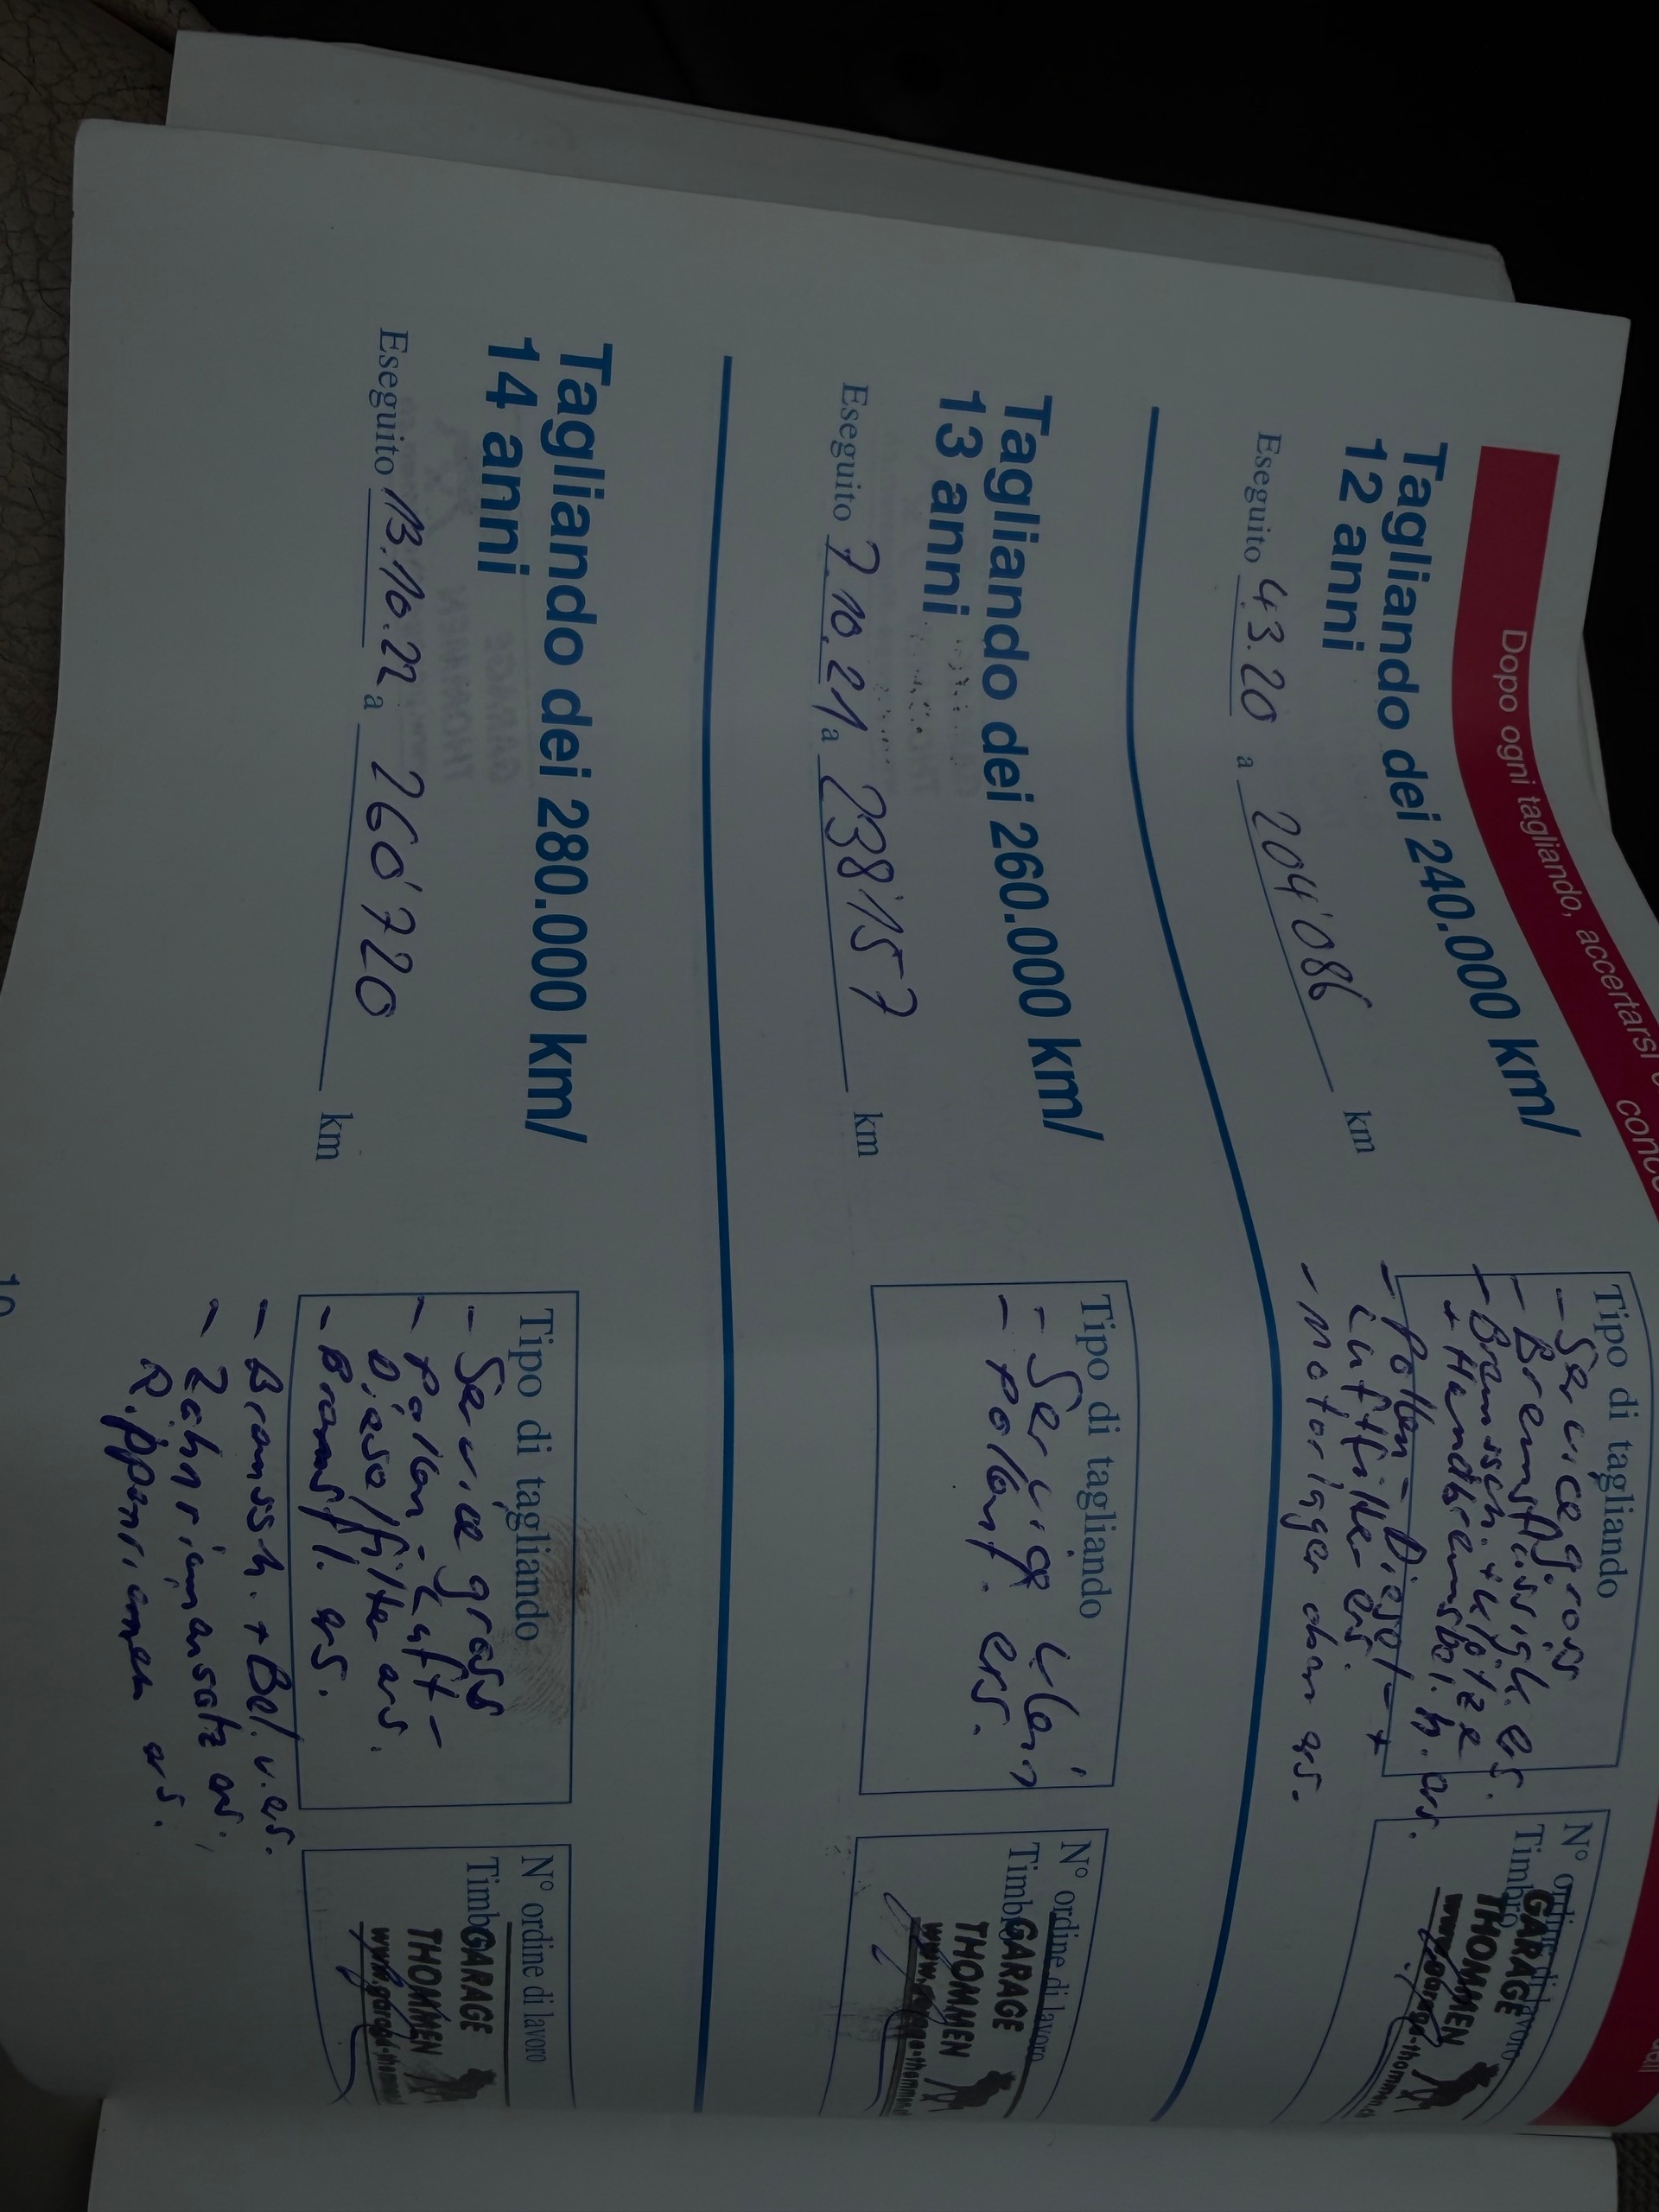 Dopo ogni tagliando, accertarsi
conce
Tagliando dei 240.000 km/
12 anni
Eseguito 4.3.20 a 204'086 km
Tipo di tagliando
- Service gross
- Bremsflüssigk. ers.
- Bremssch. + Klötze
+ Handbremsbel. h. ers.
- Pollen- Diesel- +
Luftfilter ers.
- Motorlager oben ers.
N° ordine di lavoro
Timbro
GARAGE
THOMMEN
www.garage-thommen.ch
Tagliando dei 260.000 km/
13 anni
Eseguito 7.10.21 a 238'157 km
Tipo di tagliando
- Service klein
- Pollenf. ers.
N° ordine di lavoro
Timbro
GARAGE
THOMMEN
www.garage-thommen
Tagliando dei 280.000 km/
14 anni
Eseguito 13.10.22 a 260'720 km
Tipo di tagliando
- Service gross
- Pollen- Luft-
Diesel filter ers.
- Bremsfl. ers.
- Bremssch. + Bel. v. ers.
- Zahnriemensatz ers.
Rippenriemen ers.
N° ordine di lavoro
Timbro
GARAGE
THOMMEN
www.garage-thommen